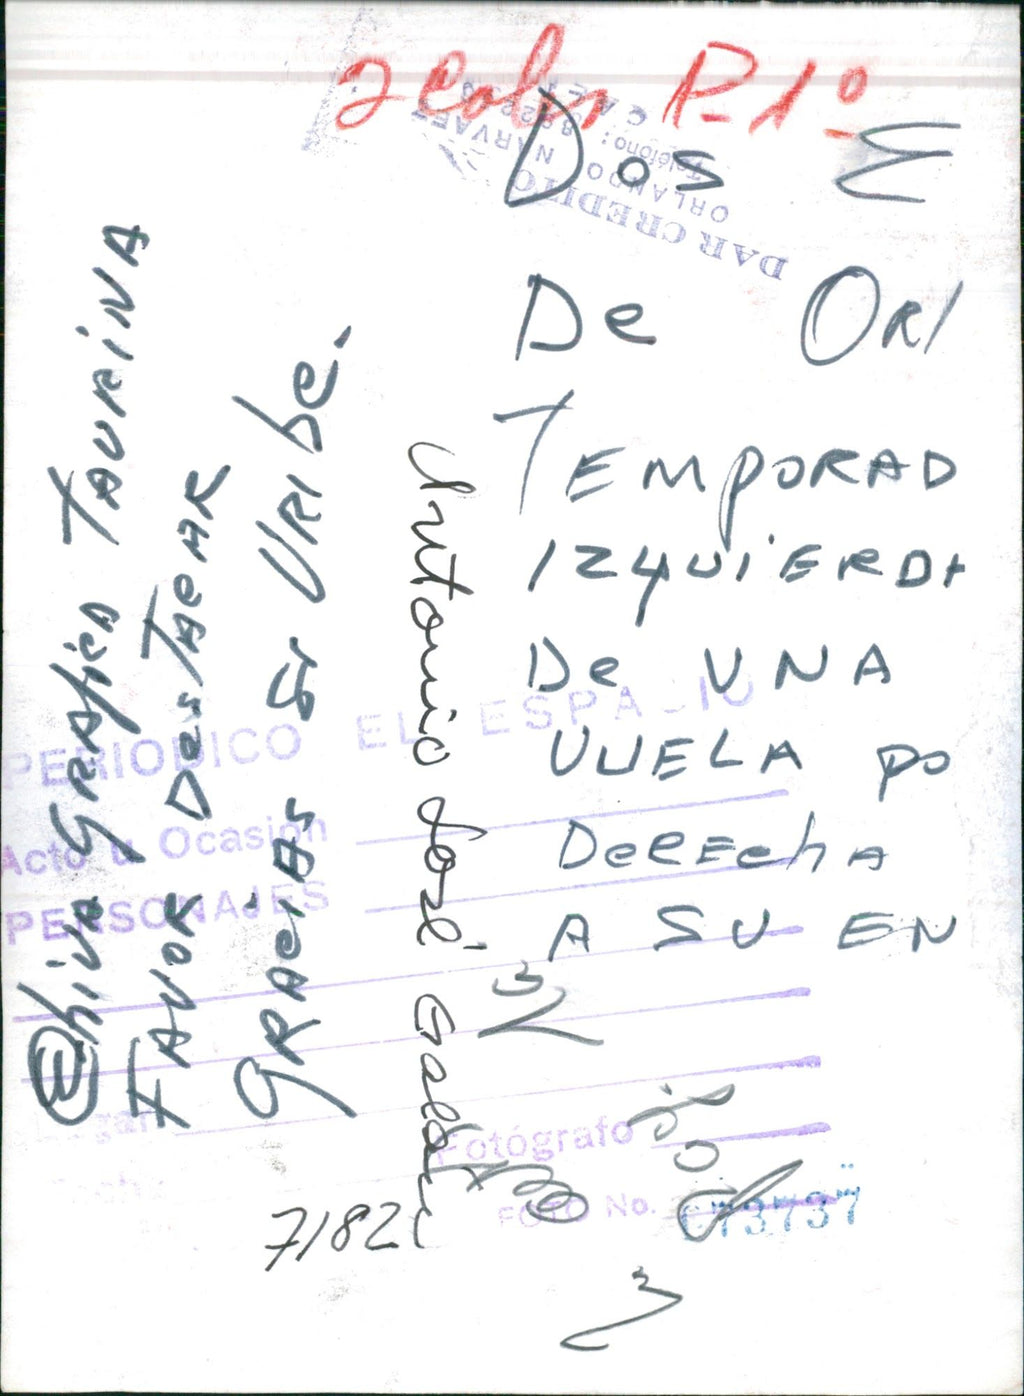 2 Color P-1º
DAR CREDITO
ORLANDO NARVAEZ
Teléfono:
Dos
De ORl
TEMPORAD
IZQUIERDA
De UNA
VUELA po
DeREchA
A SU EN
GRAfica TAURINA
FAVOR DesTAcAR
GRAciAs
URIbe.
Antonio José Galán
7/82
PERIODICO EL ESPACIO
Acto u Ocasión
PERSONAJES
Fotógrafo
FOTO No. 73737